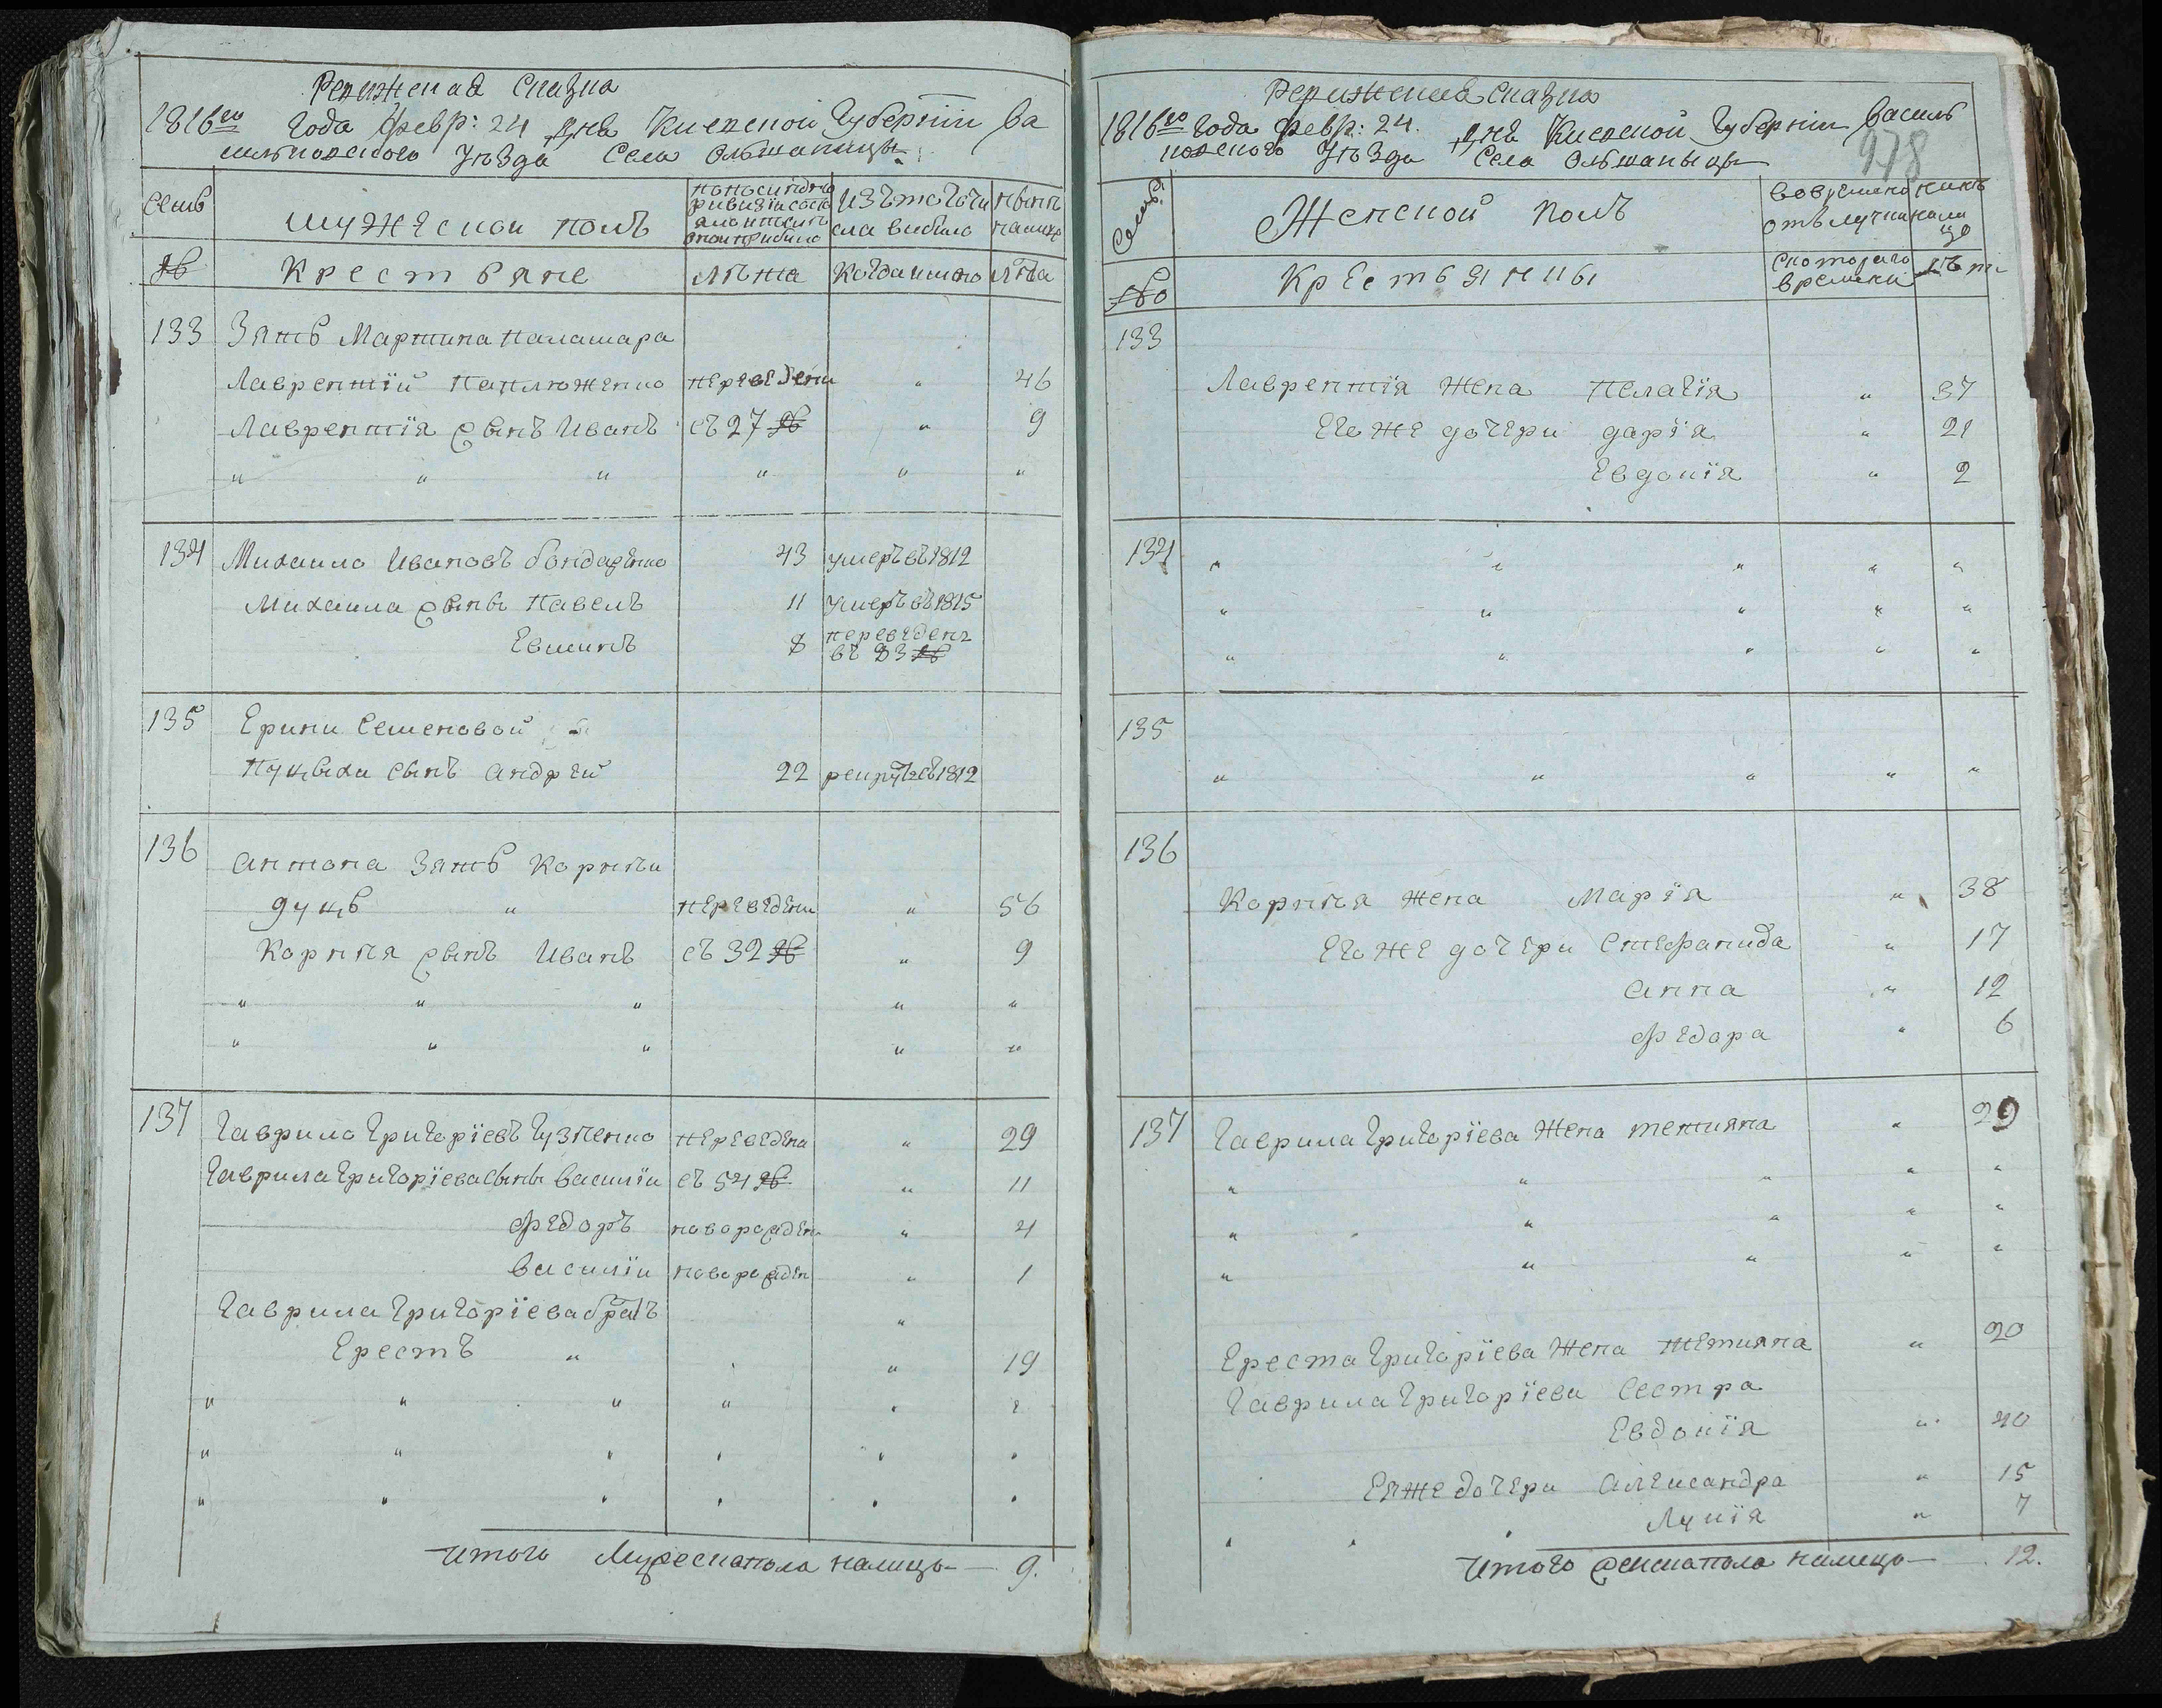 Ревижская Сказка
1816го Года Февр: 24 дня Киевской Губернїи Ва
сильковского Уезда Села Ольшаницы
Семьи
мужеской полъ
Изъ того чи
сла выбыло
ныне
налицо
№
Крестьяне
Лѣта
Когда имянно
Лѣта
133 Зять Мартина Паламара
Лаврентїй Паплюженко переведени " 46
Лаврентїя сынъ Иванъ съ 27 № " 9
" " " " " "
134 Михаило Ивановъ бондаренко 43 умеръ въ 1812
Михаила сыны Павелъ 11 умеръ въ 1815
Евтихъ 8 переведенъ
въ 83 №
135 Ерини Семеновой
Пуцыхи сынъ андрей 22 рекрутъ въ 1812
136 антона Зять Корнѣй
дуць " переведени " 56
Корнѣя сынъ Иванъ съ 32 № " 9
" " " " "
" " " " "
137 Гаврило Григорїевъ Гузненко переведени " 29
Гаврила Григорїева сыны Василїй съ 54 № " 11
Федоръ новорожден " 4
Василїй новорожден " 1
Гаврила Григорїева братъ "
Ерестъ " " 19
" " " " " "
" " " " " "
" " " " " "
Итого Мужеска пола налицо — 9.
Ревижская Сказка
1816го Года Февр: 24. дня Киевской Губернїи Василь
ковского Уезда Села Ольшаницы
978
Семья
Женской полъ
Во временной
отълучки
нинѣ
нали
цо
№
Крестьянки
Скоторого
времени
Лѣта
133
Лаврентїя Жена Пелагїя " 37
Его же дочери дарїя " 21
Евдокїя " 2
134 " " " " "
" " " " "
" " " " "
135
" " " " "
136
Корнѣя Жена Марїя " 38
Его же дочери Стефанида " 17
анна " 12
Федора " 6
137 Гаврила Григорїева Жена тетияна " 29
" " " " "
" " " " "
" " " " "
Ереста Григорїева Жена тетияна " 20
Гаврила Григорїева Сестра
Евдокїя " 40
Ея же дочери александра " 15
" " " Лукїя " 7
Итого женска пола налицо — 12.